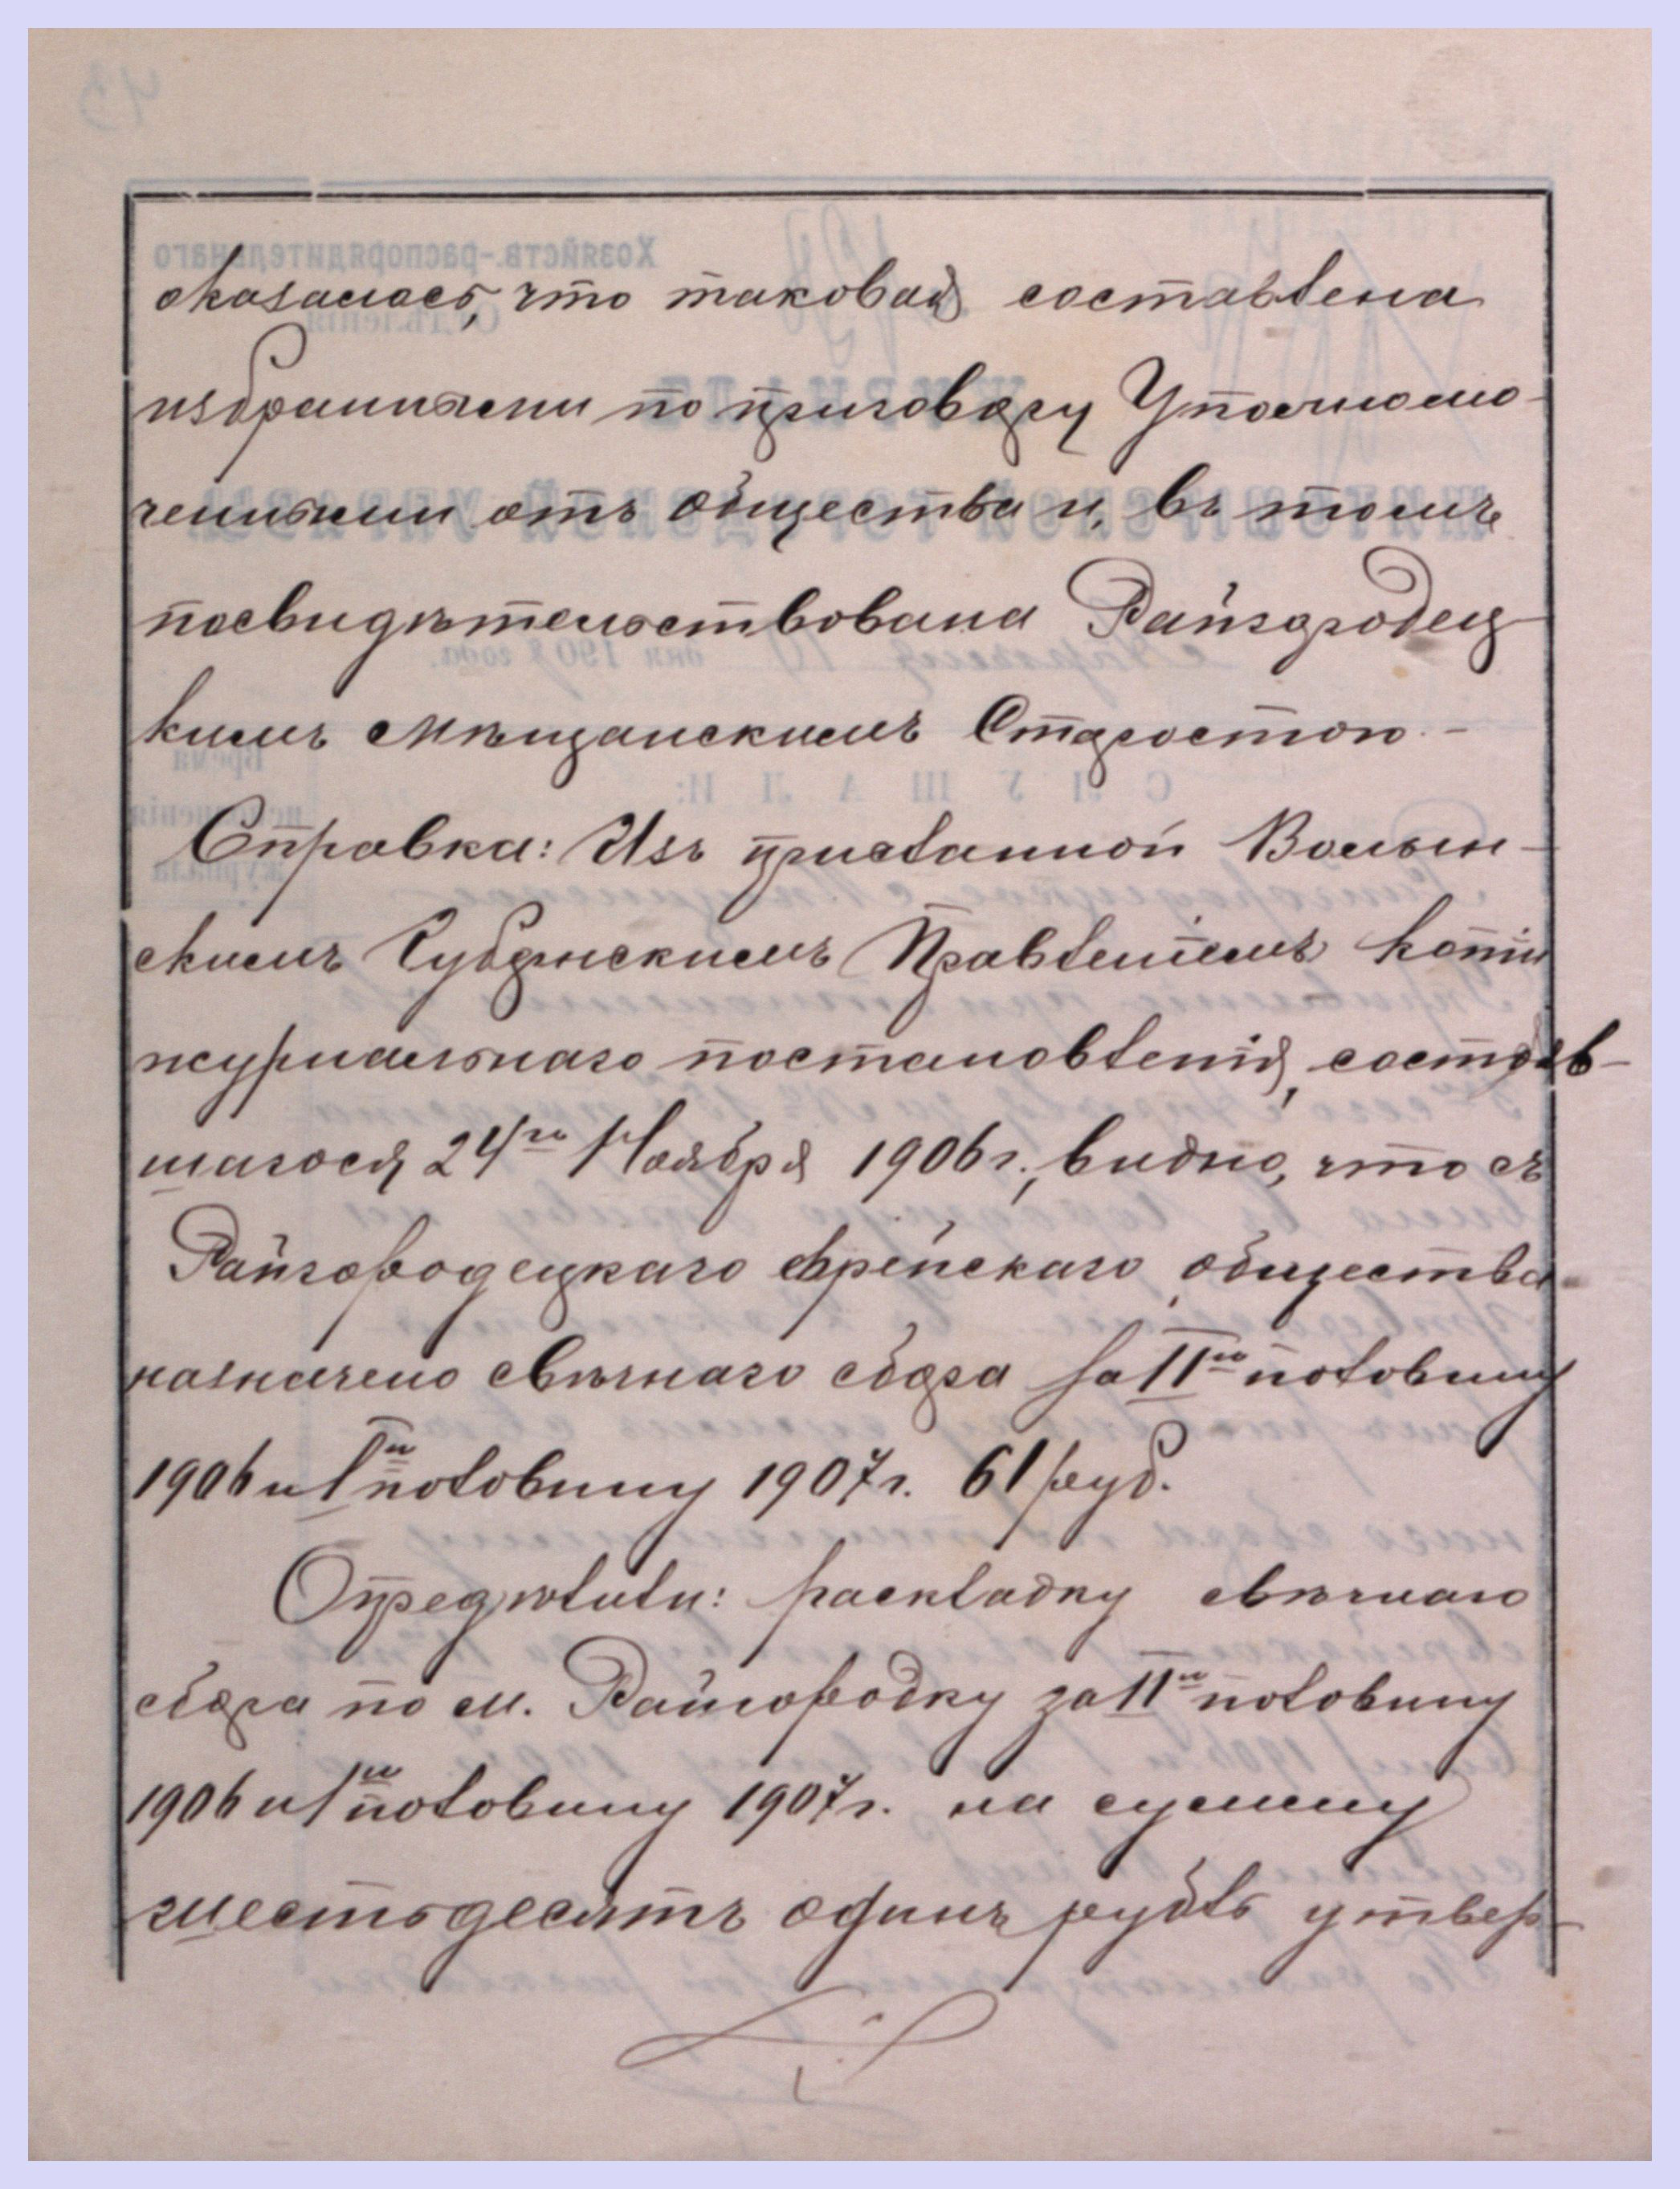 оказалось, что таковая составлена
избранными по приговору Уполномо-
ченными отъ общества и, въ томъ
посвидѣтельствована Райгородец
кимъ Мѣщанскимъ Старостою. -
Справка: Изъ присланной Волын-
скимъ Губернскимъ Правленіемъ копіи
журнальнаго постановленія, состояв-
шагося 24го Ноября 1906 г., видно, что съ
Райгородецкаго еврейскаго общества
назначено свѣчнаго сбора за IIю половину
1906 и Iю половину 1907 г. 61 руб.
Опредѣлили: раскладку свѣчнаго
сбора по м. Райгородку за IIю половину
1906 и Iю половину 1907 г. на сумму
шестьдесятъ одинъ рубль утвер-